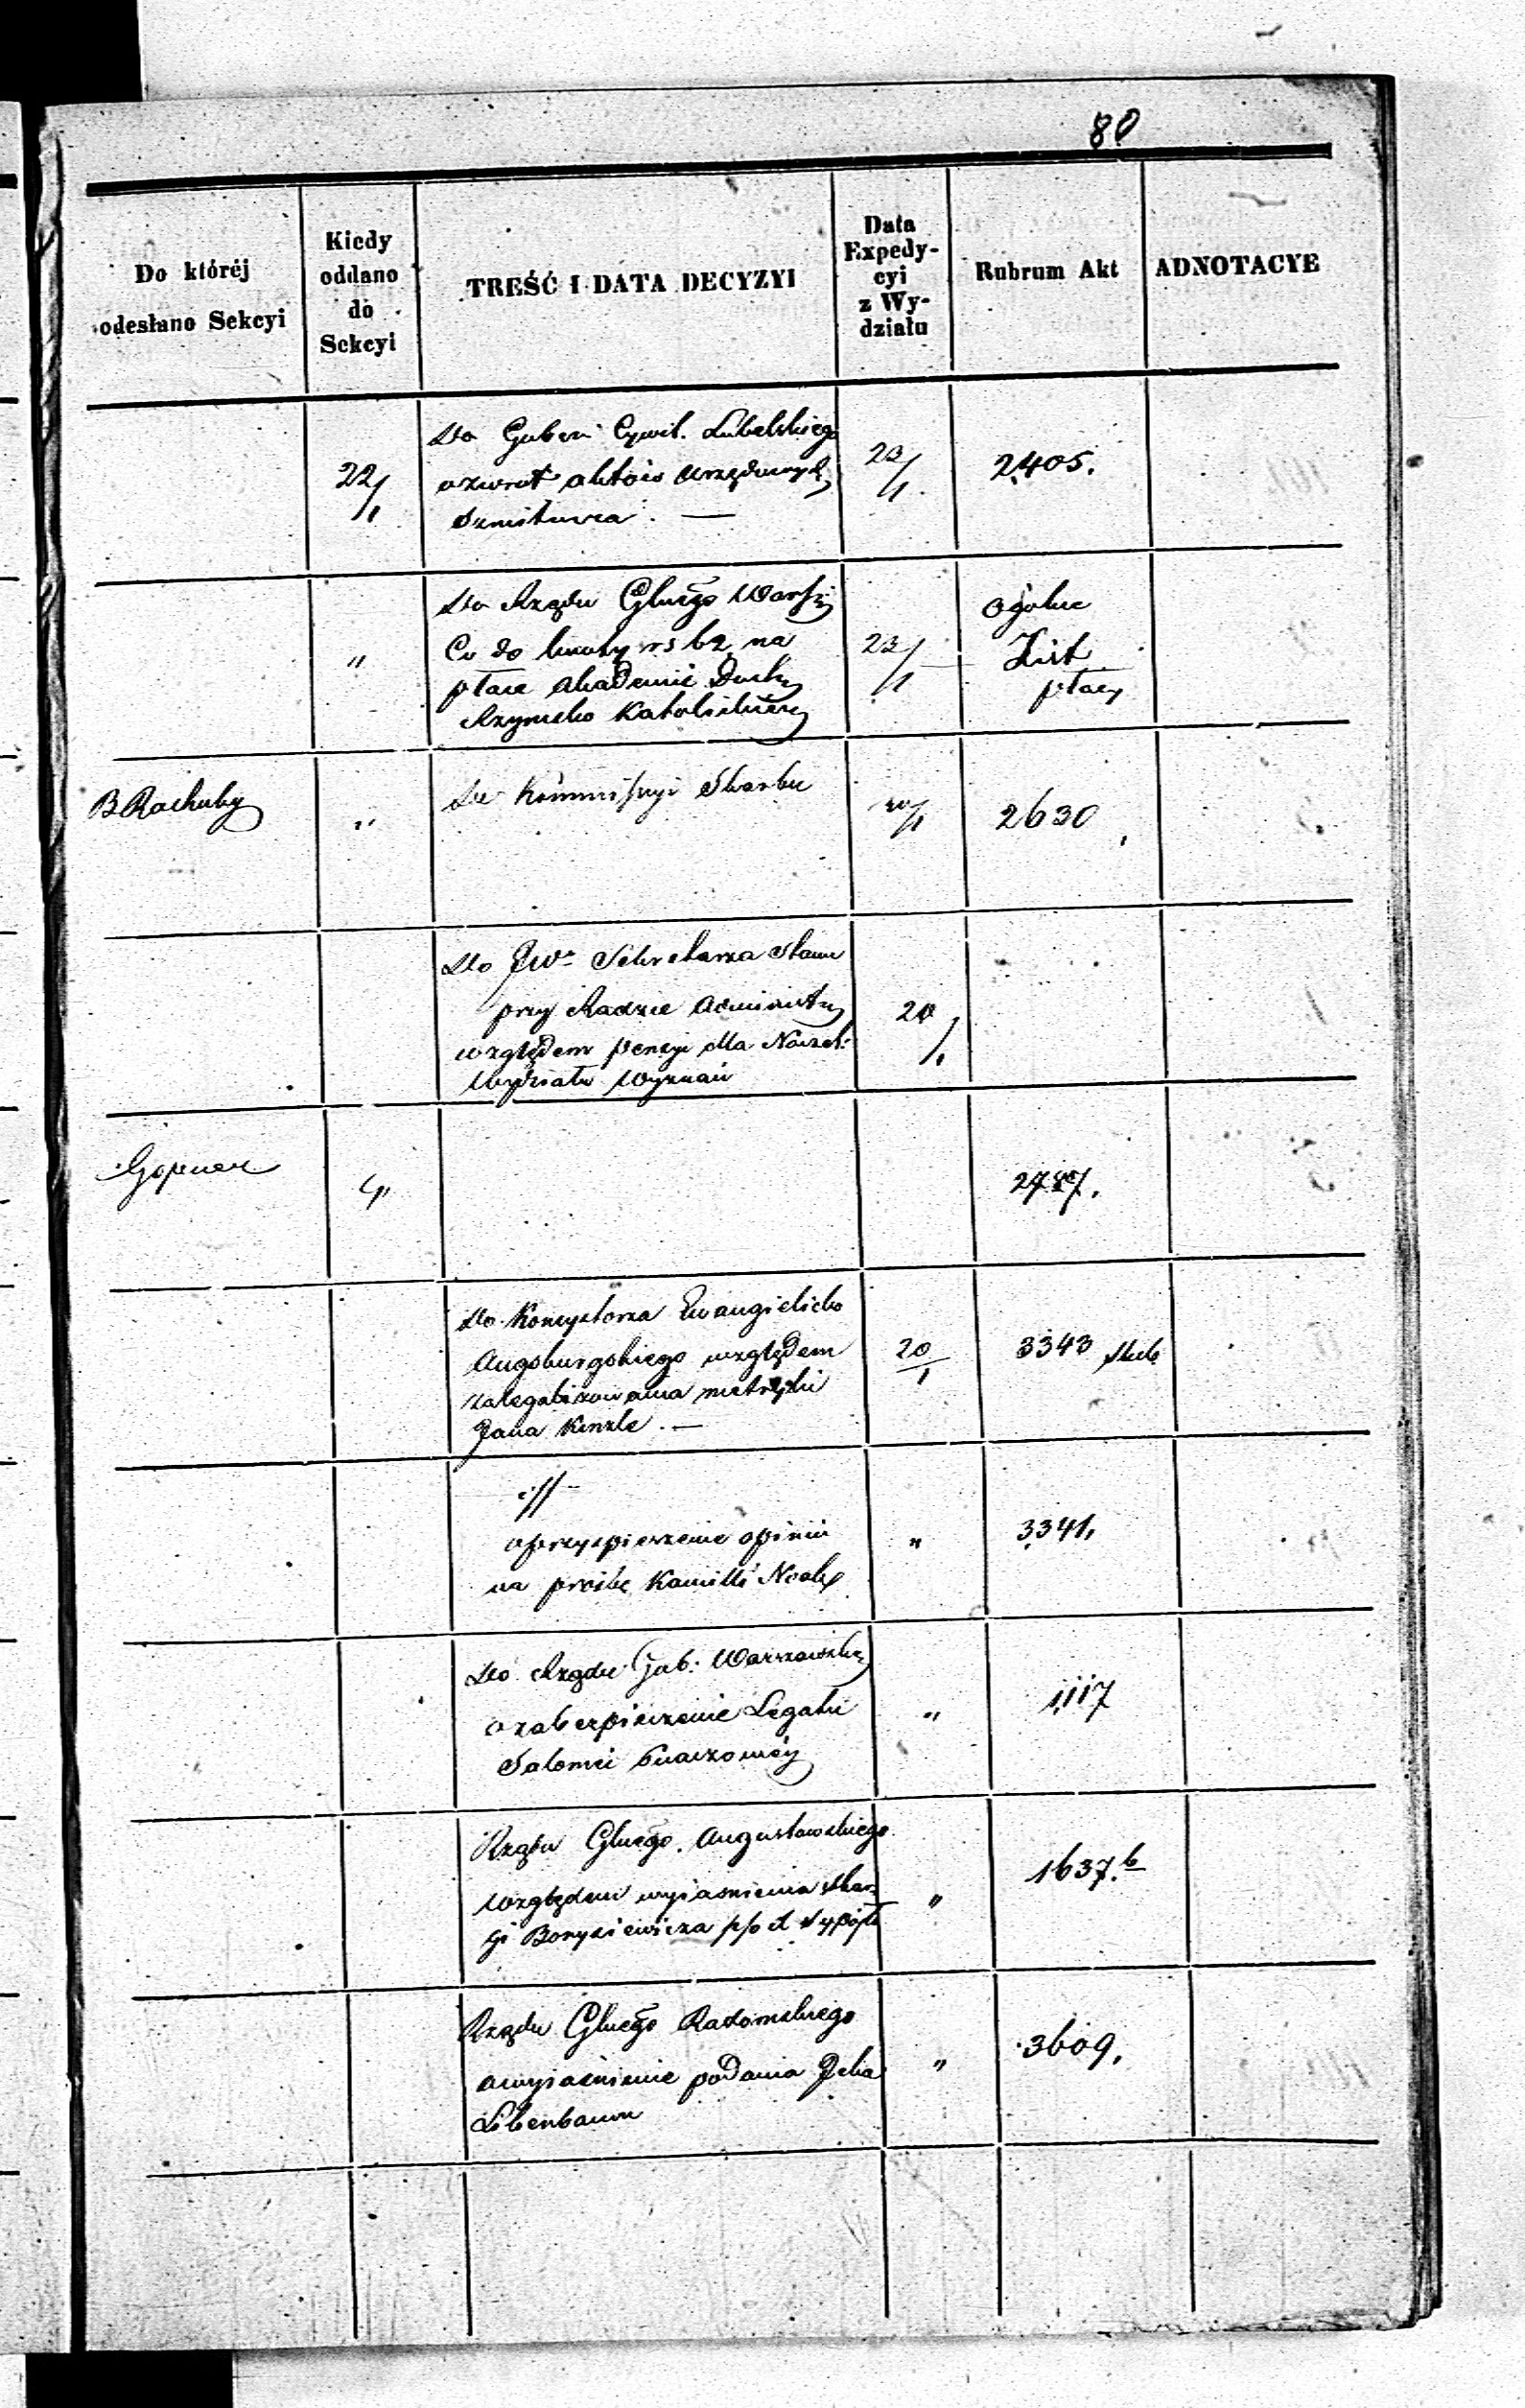 80
Do któréj
odesłano Sekcyi
Kiedy
oddano
do
Sekcyi
TREŚĆ I DATA DECYZYI
Data
Expedy-
cyi
z Wy-
działu
Rubrum Akt
ADNOTACYE
22/1
Do Gubern Cywil. Lubelskiego
o zwrot aktów urzędowych
23/1
2405.
"
Do Rządu Glnego Warsz
Co do kwoty rs 62 na
płace Akademii Duch
Rzymsko Katolickiey
23/1
Ogolne
płacy
B Rachuby
"
Do Kommissyi Skarbu
2630
Do JW Sekretarza Stanu
przy Radzie Administr
względem pensyi dla Naczel:
Wydziału Wyznań
20/1
"
2787.
Do Konsystorza Ewangielicko
Augsburgskiego względem
zalegalizowania metryki
Jana Kinzle. —
20/1
3343
o przyspieszenie opinii
na prośbę Kamilli
"
3341.
Do Rządu Gub: Warszawskiey
o zabezpieczenie Legatu
Salomei
"
1117
Rządu Glnego Augustowskiego
względem wyjasnienia skar-
gi Borysiewicza
"
1637.b
Rządu Glnego Radomskiego
o wyjaśnienie podania Icka
Libenbaum
"
3609.